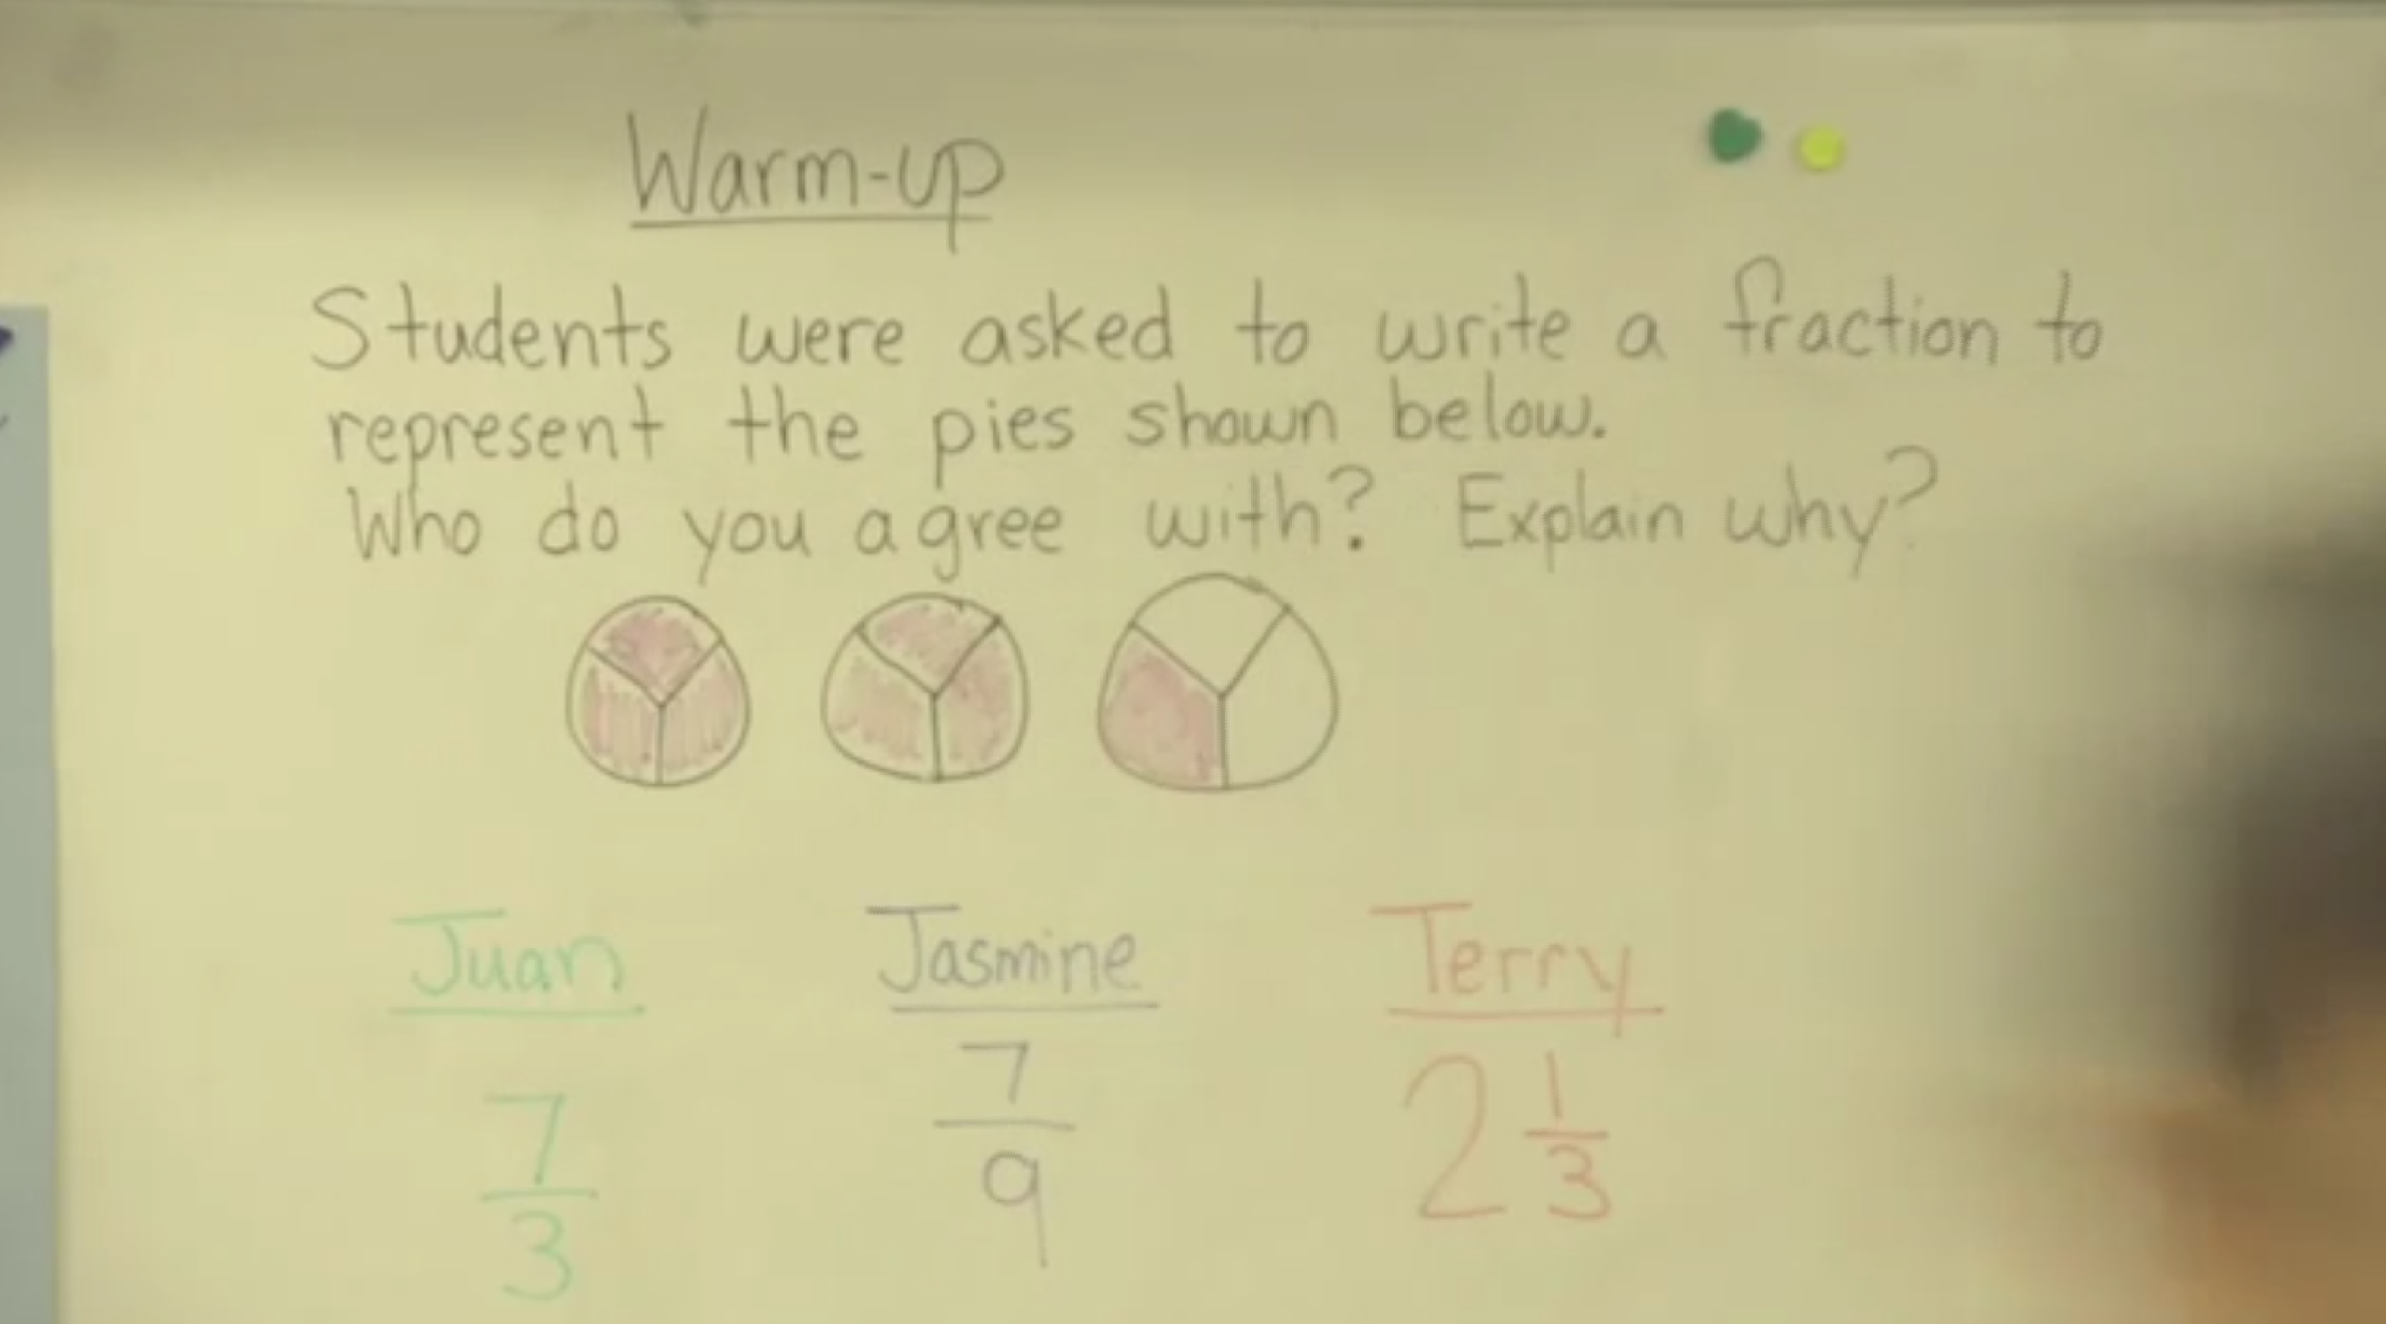 Warm-up
Students were asked to write a fraction to
represent the pies shown below.
Who do you agree with? Explain why?
Juan Jasmine Terry
7/3 7/9 2 1/3